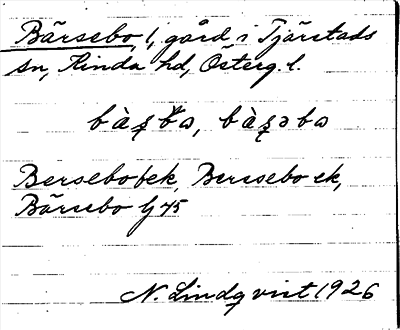 Bärsebo, 1, gård i Tjärstads
sn, Kinda hd, Österg. l.
Bersebobek, Berssebo ek,
Bärsebo G 45
N. Lindqvist 1926